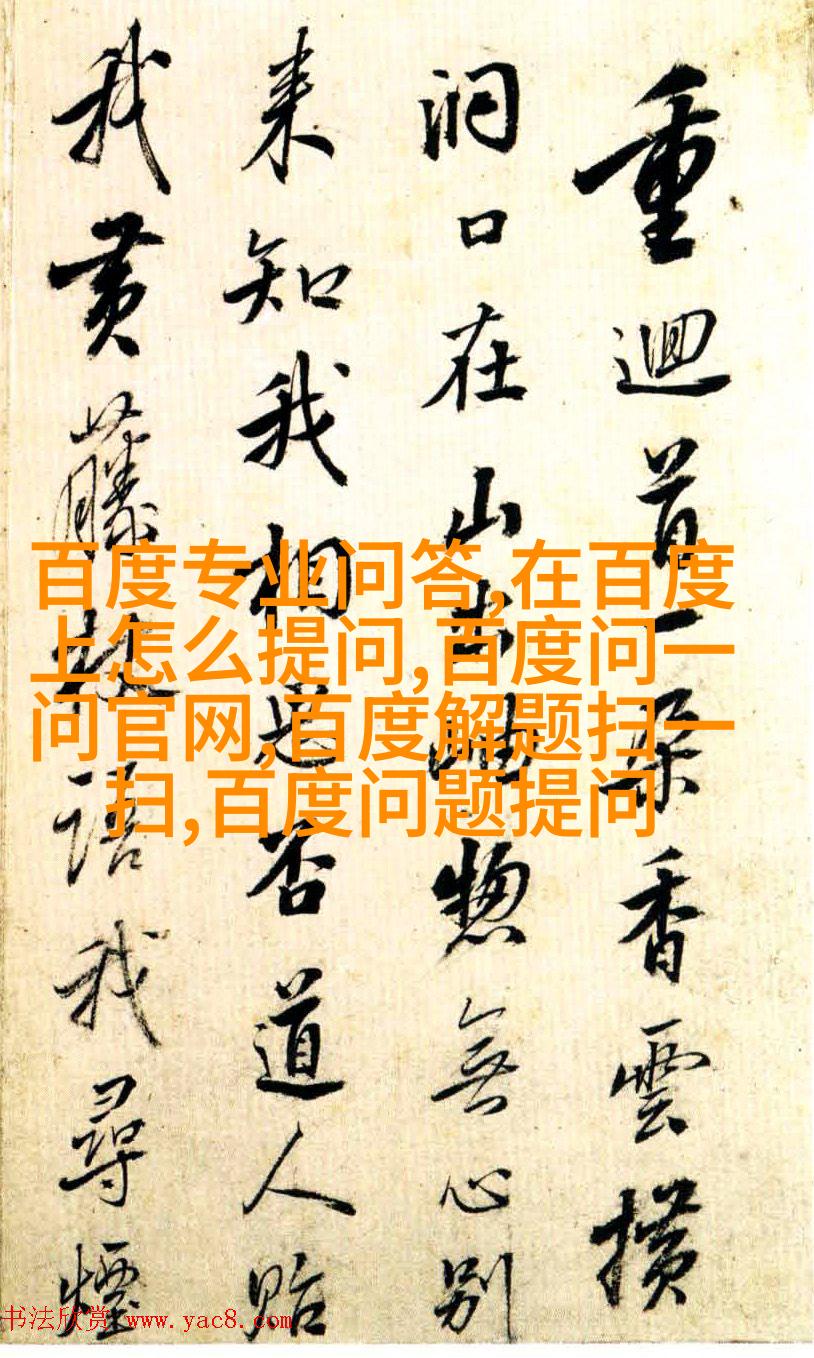 重迴首一朵香雲横
洞口在山出岫惣無心別
来知我相思否道人貽
我黄藤杖語我尋煙
百度专业问答,在百度
上怎么提问,百度问一
问官网,百度解题扫一
扫,百度问题提问
书法欣赏 www.yac8.com